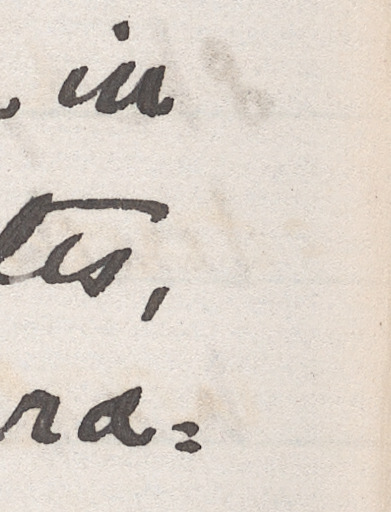 in
tes,
ra=